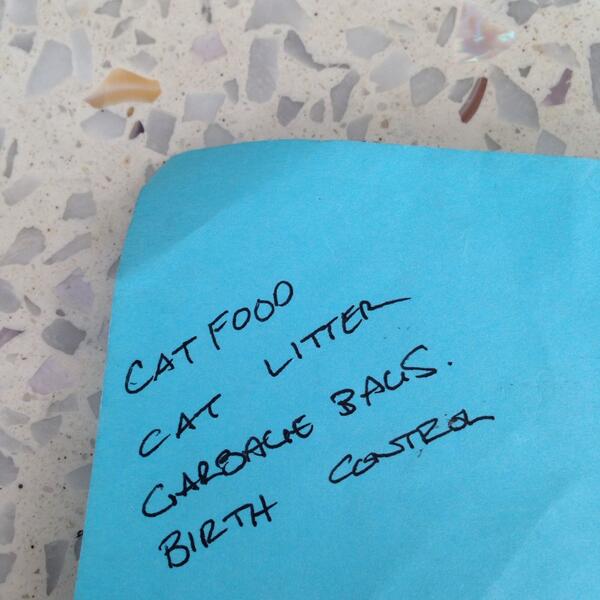 CAT FOOD
CAT LITTER
GARBAGE BAGS.
BIRTH CONTROL